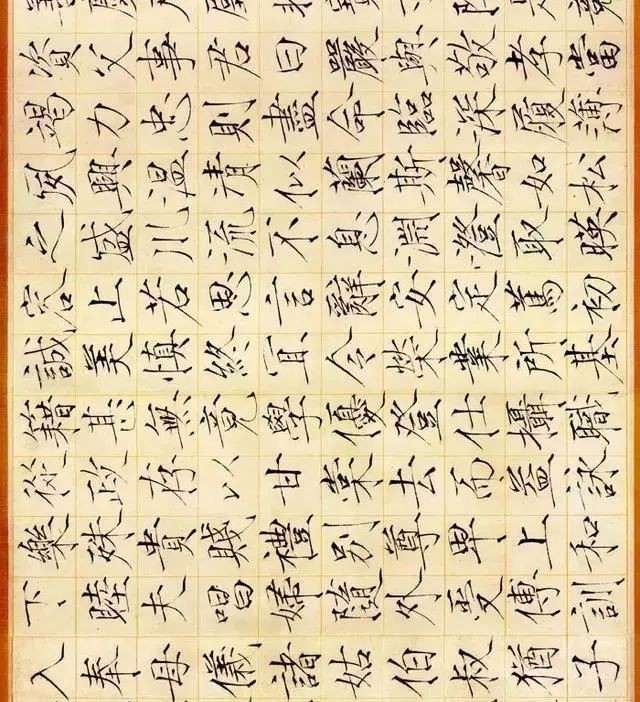 資父事君曰嚴與敬孝當
竭力忠則盡命臨深履薄
夙興溫清似蘭斯馨如松
之盛川流不息淵澄取暎
容止若思言辭安定篤初
誠美慎終宜令榮業所基
籍甚無竟學優登仕攝職
從政存以甘棠去而益詠
樂殊貴賤禮別尊卑上和
下睦夫唱婦隨外受傅訓
入奉母儀諸姑伯叔猶子